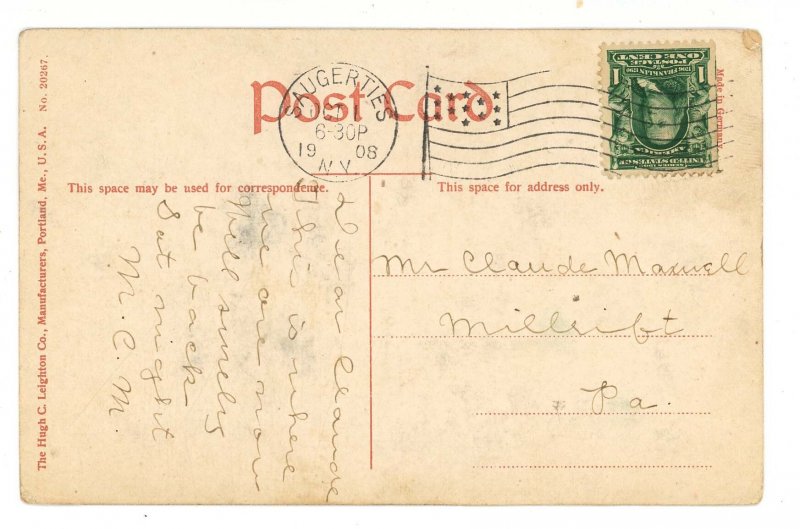 Post Card
SAUGERTIES
OCT 1
6-30P
1908
N.Y.
ONE CENT
POSTAGE
1706 FRANKLIN 1790
1 1
SERIES 1902
UNITED STATES OF AMERICA
Made in Germany
This space may be used for correspondence.
This space for address only.
Dear Claude
This is where
we are now
Will surely
be back
Sat night
M. C. M
Mr Claude Maxwell
Millrift
Pa.
The Hugh C. Leighton Co., Manufacturers, Portland, Me., U. S. A. No. 20267.